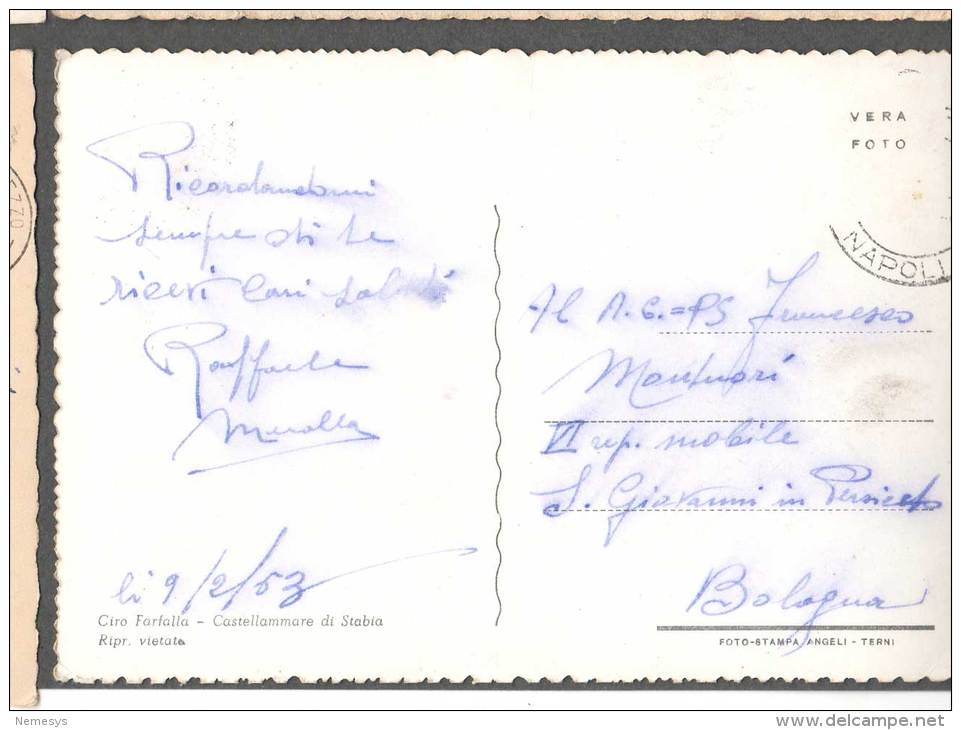 VERA
FOTO
NAPOLI
Ricordandomi
sempre di te
ricevi cari saluti
Raffaele
lì 9/2/53
Ciro Farfalla - Castellammare di Stabia
Ripr. vietata
Al A.G.=PS Francesco
Montuori
VI rep. mobile
S. Giovanni in Persiceto
Bologna
FOTO-STAMPA ANGELI - TERNI
Nemesys
delcampe.net